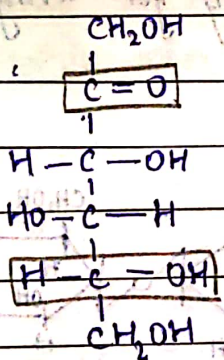 CH₂OH
C = O
H – C – OH
HO – C – H
H – C – OH
CH₂OH